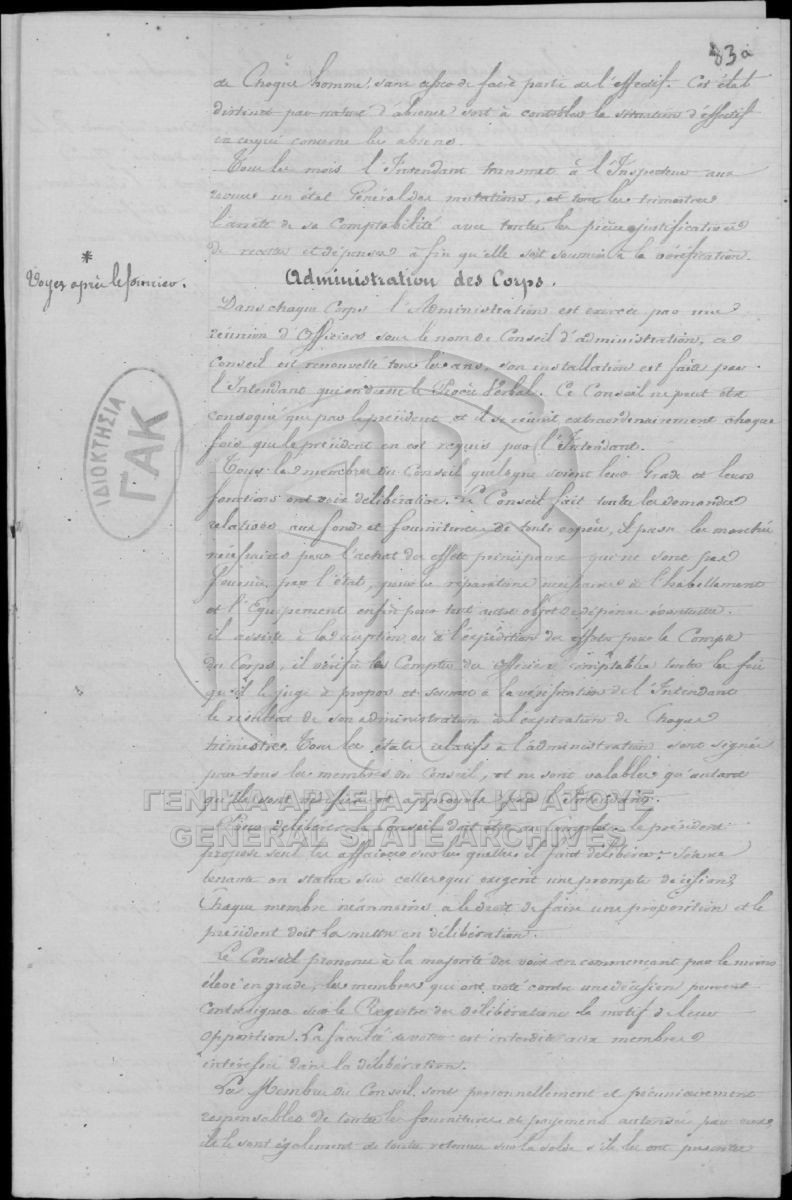 83a
de Chaque homme, sans cesser de faire partie de l'effectif. Cet état
distinct par nature d'absence sert à contrôler la situation d'effectif
en ce qui concerne les absens.
Tous les mois l'Intendant transmet à l'Inspecteur aux
revues un état Général des mutations, et tous les trimestres
l'arrêté de sa Comptabilité avec toutes les pièces justificatives
de recettes et dépenses à fin qu'elle soit soumise à la vérification.
*
Voyez après le foncier.
Administration des Corps.
Dans chaque Corps l'Administration est exercée par une
réunion d'Officiers sous le nom de Conseil d'administration, ce
Conseil est renouvellé tous les ans, son installation est faite par
l'Intendant qui en dresse le Procès Verbal. Ce Conseil ne peut être
convoqué que par le président et il se réunit extraordinairement chaque
fois que le président en est requis par l'Intendant.
Tous les membres du Conseil quelque soient leur Grade et leurs
fonctions ont voix délibérative. Le Conseil fait toutes les demandes
relatives aux fonds et fournitures de toute espèce, il passe les marchés
nécessaires pour l'achat des effets principaux qui ne sont pas
fournis par l'état, pour les réparations nécessaires de l'habillement
et l'Equipement enfin pour tout autre objet de dépense
il assiste à la réception ou à l'expédition des effets pour le Compte
du Corps, il vérifie les Comptes des officiers comptables toutes les fois
qu'il le juge à propos et soumet à la vérification de l'Intendant
le résultat de son administration à l'expiration de Chaque
trimestre. Tous les états relatifs à l'administration sont signés
par tous les membres du Conseil, et ne sont valables qu'autant
qu'ils sont vérifiés et approuvés par l'Intendant.
Pour délibérer le Conseil doit être au Complet. le président
propose seul les affaires sur les quelles il faut délibérer. Séance
tenante on statue sur celles qui exigent une prompte décision,
Chaque membre néanmoins a le droit de faire une proposition et le
président doit la mettre en délibération.
Le Conseil prononce à la majorité des voix en commençant par le moins
élevé en grade, les membres qui ont voté contre une décision peuvent
contresigner sur le Registre des délibérations le motif de leur
opposition. La faculté de voter est interdite aux membres
intéressés dans la délibération.
Les Membres du Conseil sont personnellement et pécuniairement
responsables de toutes les fournitures et payemens autorisés par eux,
ils le sont également de toute retenue sur la solde s'ils les ont
ΙΔΙΟΚΤΗΣΙΑ
ΓΑΚ
ΓΕΝΙΚΑ ΑΡΧΕΙΑ ΤΟΥ ΚΡΑΤΟΥΣ
GENERAL STATE ARCHIVES